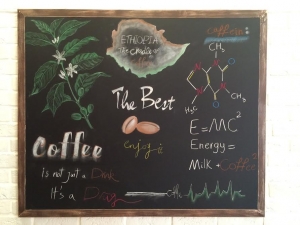 ETHIOPIA
The Cradle of
Caffeine:
CH₃
H₃C
CH₃
The Best
Enjoy it
E=MC²
Energy =
Milk + Coffee²
Coffee
Is not just a Drink
It's a Drug